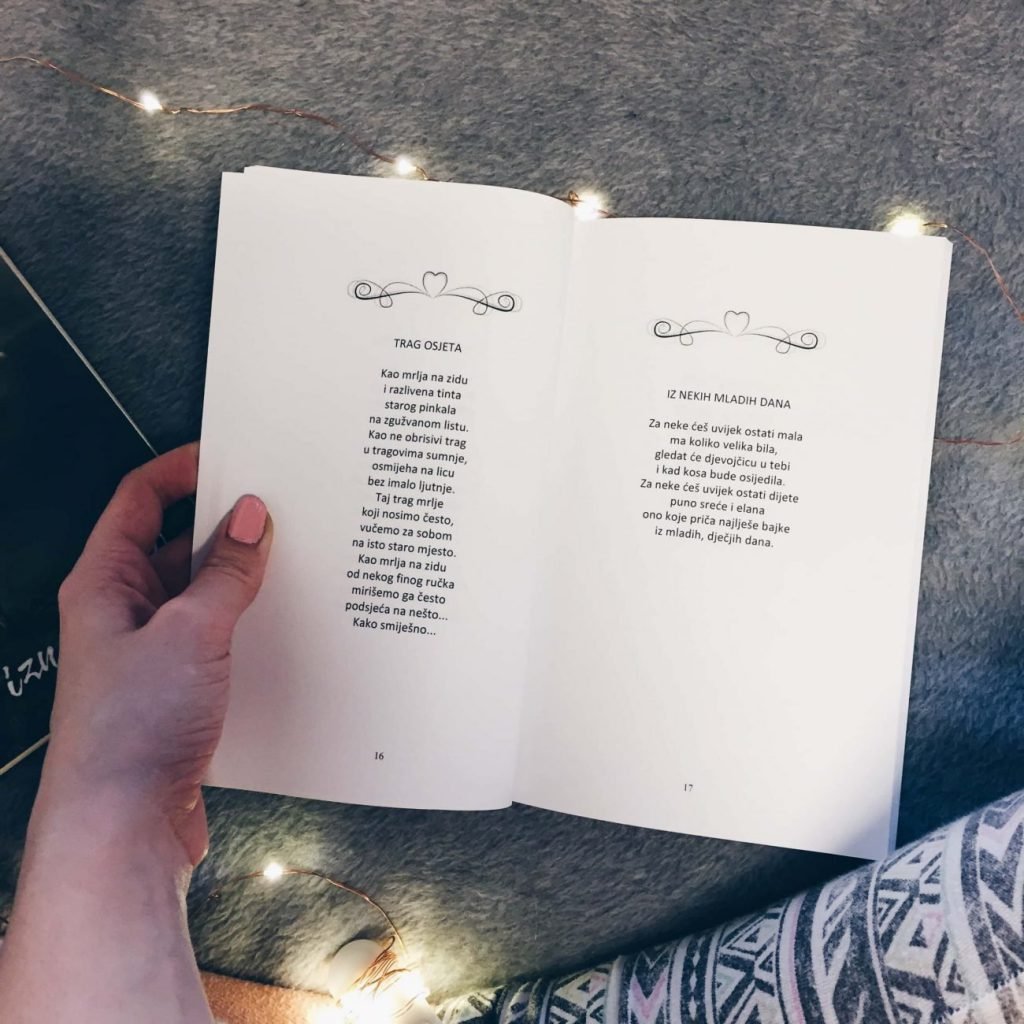 TRAG OSJETA
Kao mrlja na zidu
i razlivena tinta
starog pinkala
na zgužvanom listu.
Kao ne obrisivi trag
u tragovima sumnje,
osmijeha na licu
bez imalo ljutnje.
Taj trag mrlje
koji nosimo često,
vučemo za sobom
na isto staro mjesto.
Kao mrlja na zidu
od nekog finog ručka
mirišemo ga često
podsjeća na nešto...
Kako smiješno...
16
IZ NEKIH MLADIH DANA
Za neke ćeš uvijek ostati mala
ma koliko velika bila,
gledat će djevojčicu u tebi
i kad kosa bude osijedila.
Za neke ćeš uvijek ostati dijete
puno sreće i elana
ono koje priča najlješe bajke
iz mladih, dječjih dana.
17